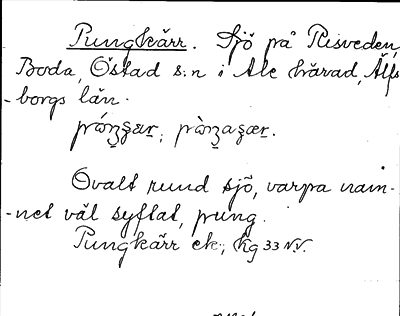 Pungkärr. Sjö på Risveden,
Boda, Östad s:n i Ale härad, Älfs-
-borgs län.
Ovalt rund sjö, varpå nam-
-net väl syftat, pung.
Pungkärr ek.; Kg 33 N.V.